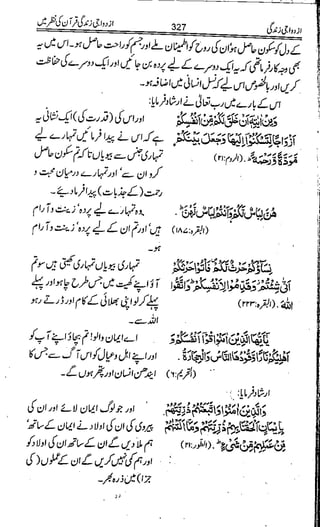 ازدواجی زندگی 327 ازدواجی زندگی قرآن کی نظر میں
کے دل کو سکون حاصل ہو ان کی روح کو اطمینان ملے اور جسم کو راحت حاصل ہو۔ اس میں یہ
بھی وجہ کار فرما تھی کہ یہ ایک دوسرے کے لیے پردہ بن جائیں اور ایک دوسرے کی حفاظت
کریں اور بالخصوص اس لیے کہ نسل انسانی میں اضافہ ہو۔
اس کے بارے میں رب تعالیٰ نے ارشاد فرمایا:
وَمِنْ اٰيٰتِهٖٓ اَنْ خَلَقَ لَكُمْ مِّنْ اَنْفُسِكُمْ
اَزْوَاجًا لِّتَسْكُنُوْٓا اِلَيْهَا وَجَعَلَ بَيْنَكُمْ
مَّوَدَّةً وَّرَحْمَةً۔ (الروم:۲۱)
اور اس کی (قدرت کی) ایک نشانی یہ
ہے کہ اس نے پیدا فرمائیں تمہارے لیے
تمہاری جنس سے بیویاں تاکہ تم سکون حاصل
کرو ان سے اور تمہارے درمیان محبت و
رحمت (کے جذبات) پیدا فرما دیے۔
هُنَّ لِبَاسٌ لَّكُمْ وَاَنْتُمْ لِبَاسٌ لَّهُنَّ۔
(البقرہ:۱۸۷)
وہ تمہارے لیے پردہ، زینت و آرام
ہیں اور تم ان کے لیے پردہ زینت و آرام
ہو۔
نِسَآؤُكُمْ حَرْثٌ لَّكُمْ فَاْتُوْا حَرْثَكُمْ
اَنّٰى شِئْتُمْ وَقَدِّمُوْا لِاَنْفُسِكُمْ وَاتَّقُوا
اللّٰهَ۔ (البقرہ:۲۲۳)
تمہاری بیویاں تمہاری کھیتی ہیں سو تم
آؤ اپنے کھیت میں جس طرح چاہو اور پہلے
پہلے کر لو اپنی بھلائی کے کام اور ڈرتے رہو
اللہ سے۔
يٰٓاَيُّهَا الَّذِيْنَ اٰمَنُوْا قُوْٓا اَنْفُسَكُمْ وَ
اَهْلِيْكُمْ نَارًا وَّقُوْدُهَا النَّاسُ وَالْحِجَارَةُ۔
(التحریم:۶)
اے ایمان والو! تم بچاؤ اپنے آپ کو
اور اپنے اہل و عیال کو اس آگ سے جس کا
ایندھن انسان اور پتھر ہوں گے۔
ارشاد فرمایا:
وَالَّذِيْنَ اٰمَنُوْا وَاتَّبَعَتْهُمْ ذُرِّيَّتُهُمْ
بِاِيْمَانٍ اَلْحَقْنَا بِهِمْ ذُرِّيَّتَهُمْ وَمَآ اَلَتْنٰهُمْ
مِّنْ عَمَلِهِمْ مِّنْ شَيْءٍ۔ (الطور:۲۱)
اور جو لوگ ایمان لائے اور ان کی
پیروی کی ان کی اولاد نے ایمان کے ساتھ،
ہم ملا دیں گے ان کے ساتھ ان کی اولاد کو
اور ہم کمی نہیں کریں گے ان کے عملوں (کی
جزا) میں ذرہ بھر۔